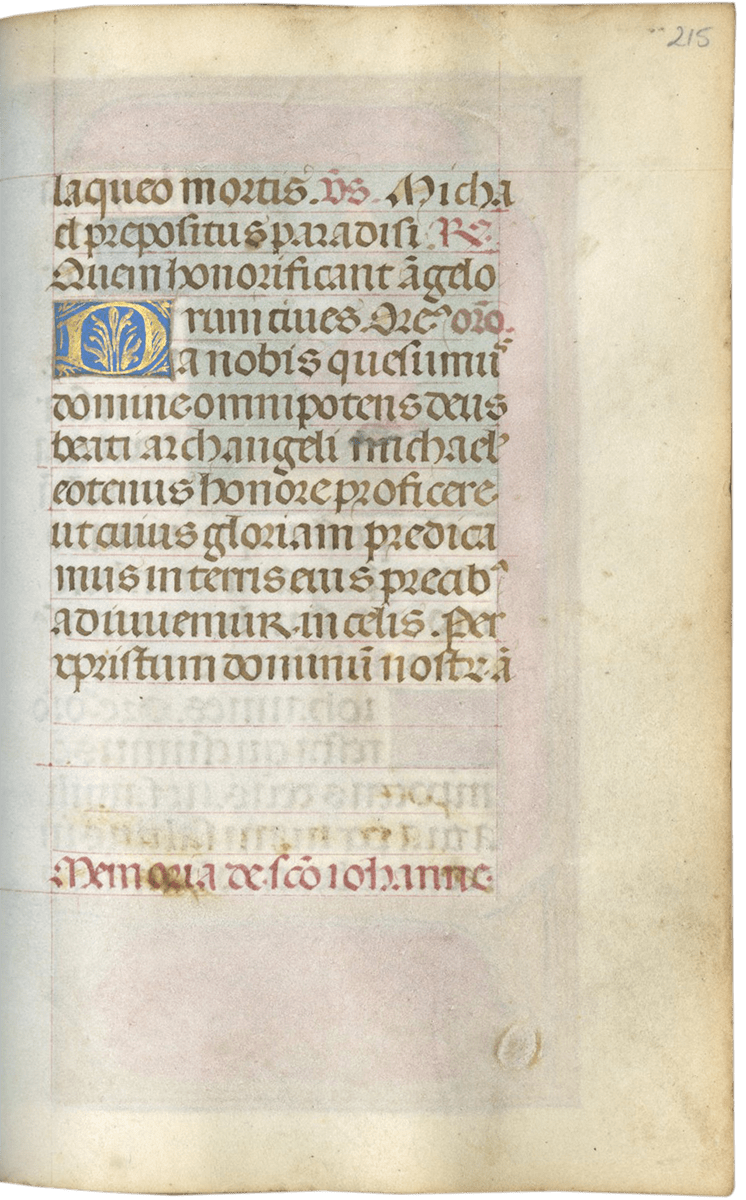 215
laqueo mortis. v̄s. Micha
el prepositus paradisi. R̄.
Quem honorificant āgelo
rum ciues. Ore⁹ orō.
Da nobis quesumu᷒
domine omnipotens deus
beati archangeli michael᷒
eotenus honore proficere
ut cuius gloriam predica
mus in terris eius precib᷒
adiuuemur. in celis. Per
xpristum dominū nostrā
Memoria de scō iohanne